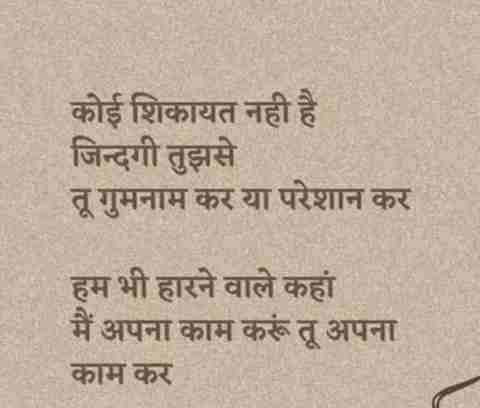 कोई शिकायत नही है
जिन्दगी तुझसे
तू गुमनाम कर या परेशान कर
हम भी हारने वाले कहां
मैं अपना काम करूं तू अपना
काम कर